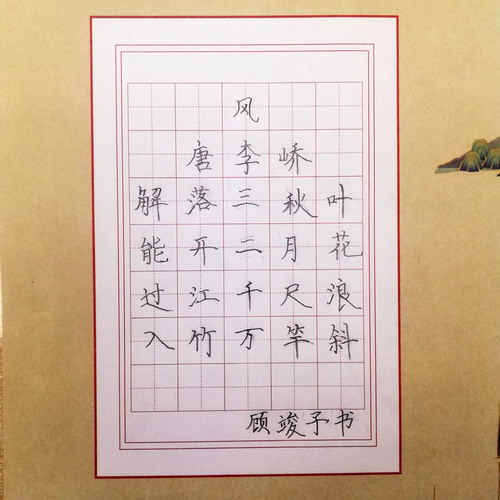 风
唐李峤
解落三秋叶
能开二月花
过江千尺浪
入竹万竿斜
顾竣予书